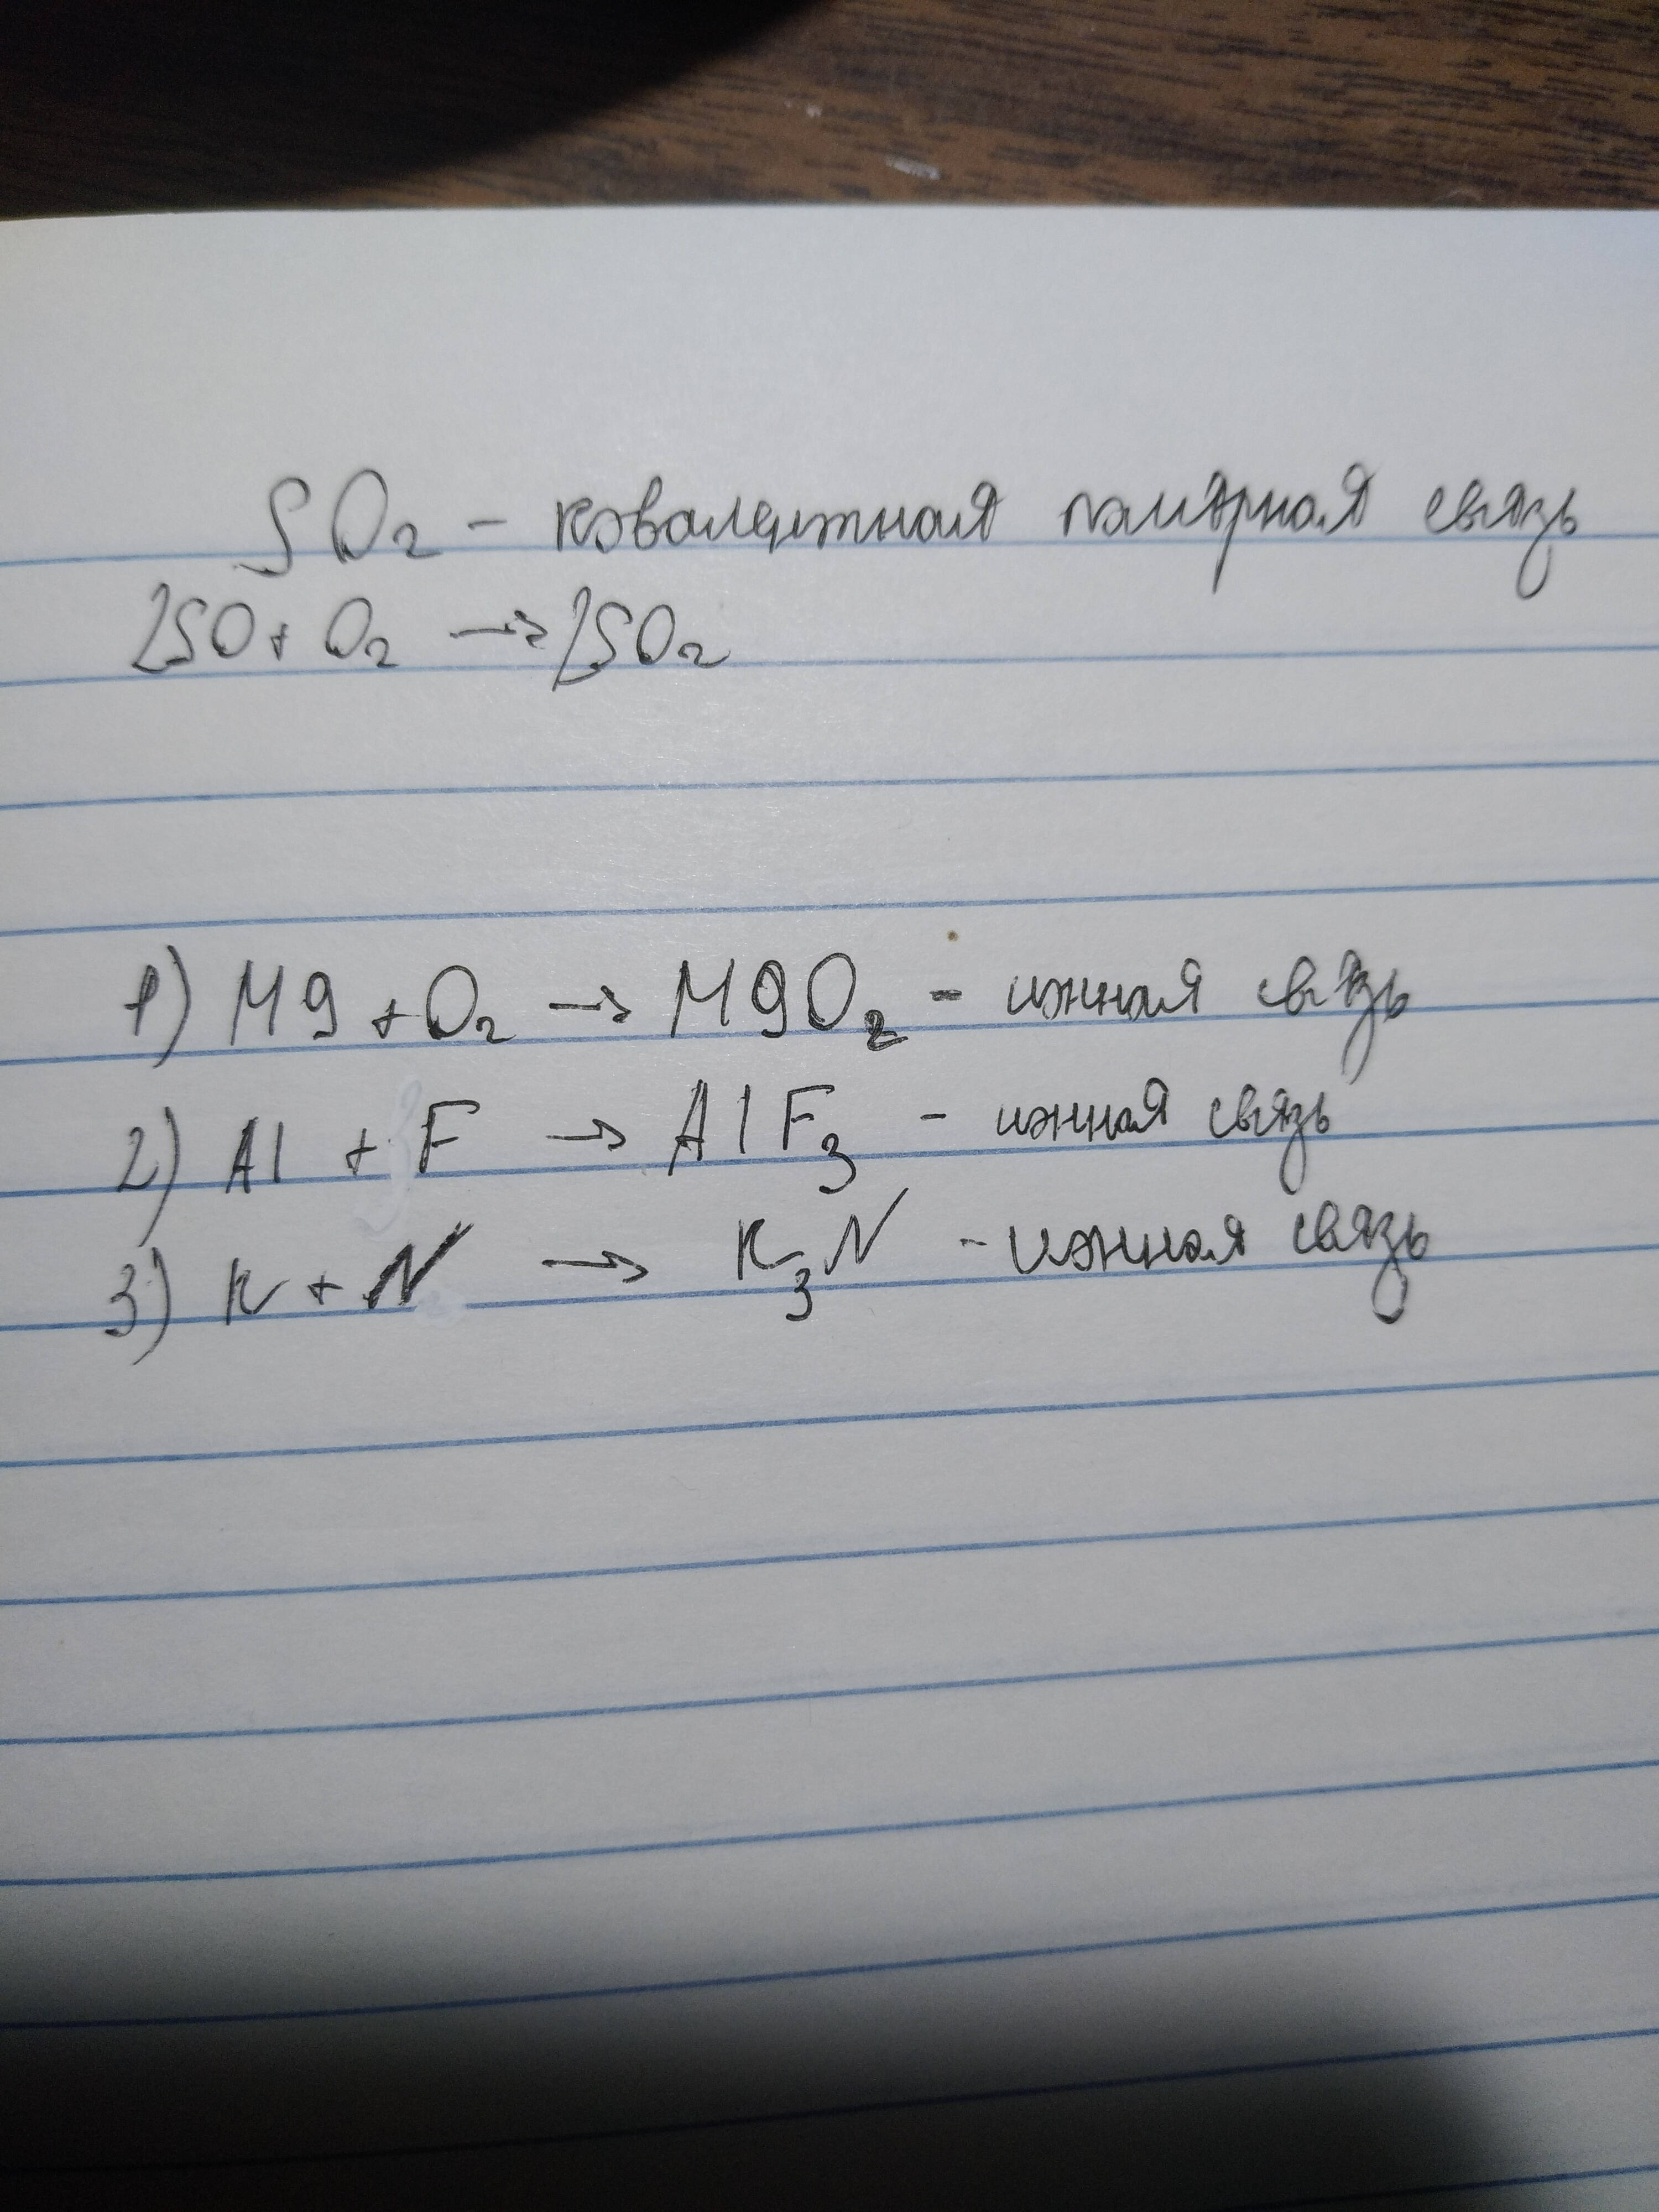 SO₂ - ковалентная полярная связь
2SO + O₂ → 2SO₂
1) Mg + O₂ → MgO₂ - ионная связь
2) Al + F → AlF₃ - ионная связь
3) K + N → K₃N - ионная связь